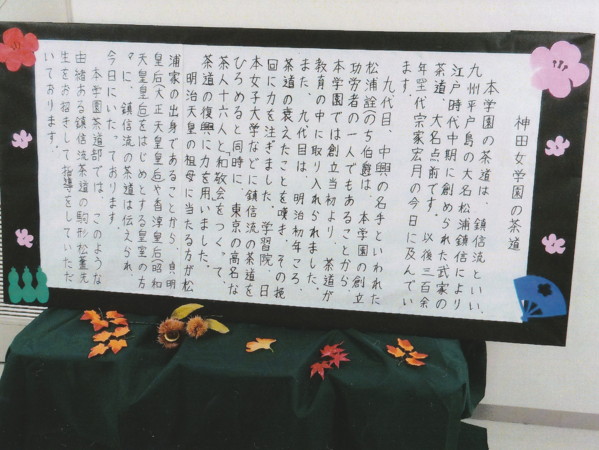 神田女学園の茶道
本学園の茶道は、鎮信流といい、
九州平戸島の大名松浦鎮信により
江戸時代中期に創められた武家の
茶道、大名点前です。以後三百余
年、代宗家宏月の今日に及んでい
ます。
九代目、中興の名手といわれた
松浦詮(のち伯爵)は、本学園の創立
功労者の一人でもあることから、
本学園では創立当初より、茶道が
教育の中に取り入れられました。
また、九代目は、明治初年ころ、
茶道の衰えたことを嘆き、その挽
回に力を注ぎました。学習院、日
本女子大学などに鎮信流の茶道を
ひろめると同時に、東京の高名な
茶人十六人と和敬会をつくって、
茶道の復興に力を用いました。
明治天皇の祖母に当たる方が松
浦家の出身であることから、貞明
皇后(大正天皇皇后)や香淳皇后(昭和
天皇皇后)をはじめとする皇室の方
々に、鎮信流の茶道は伝えられ、
今日にいたっております。
本学園茶道部では、このような
由緒ある鎮信流茶道の駒形松蓋先
生をお招きして指導をしていただ
いております。